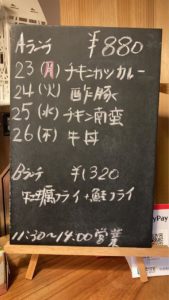 Aランチ ¥880
23(月)チキンカツカレー
24(火)酢豚
25(水)チキン南蛮
26(木)牛丼
Bランチ ¥1320
牡蠣フライ+鮭フライ
11:30~14:00営業
PayPay